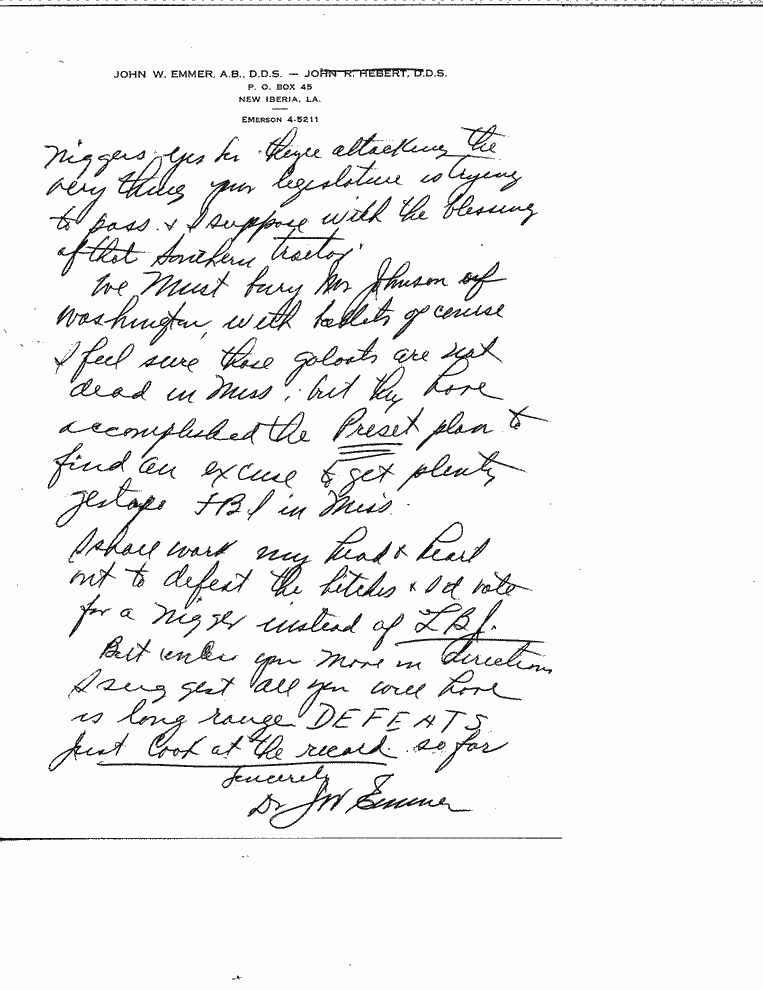 JOHN W. EMMER, A.B., D.D.S. — JOHN R. HEBERT, D.D.S.
P. O. BOX 45
NEW IBERIA, LA.
EMERSON 4-5211
Niggers, yes sir they're attacking the
very thing your legislature is trying
to pass & I suppose with the blessing
of that Southern traitor.
We Must bury Mr Johnson of
Washington, with ballots of course
I feel sure those galoots are not
dead in Miss, but they have
accomplished the Preset plan to
find an excuse to get plenty
gestapo FBI in Miss.
I shall work my head & heart
out to defeat the bitches & I'd vote
for a Nigger instead of LBJ.
But unless you move in directions
I suggest all you will have
is long range DEFEATS
Just look at the record so far
Sincerely
Dr JW Emmer